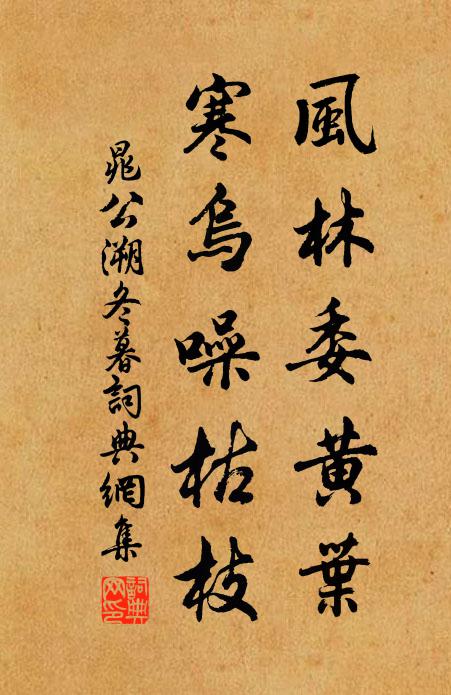 風林委黃葉
寒烏噪枯枝
晁公溯冬暮詞典網集
詞典網印